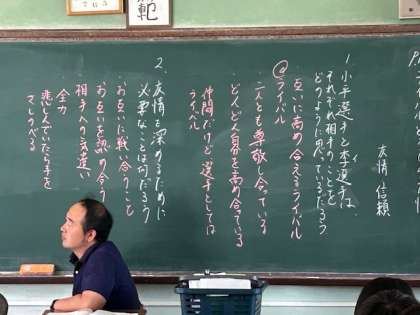 範
友情 信頼
1. 小平選手と李選手は、
それぞれ相手のことを
どのように思っているだろう
@ライバル
互いに高め合えるライバル
二人とも尊敬し合っている
どんどん自分を高め合っている
仲間だけど選手としては
ライバル
2. 友情を深めるために
必要なことは何だろう
お互いに戦い合うことも
お互いを認め合う
相手への気遣い
全力
悲しんでいたら手を
さしのべる